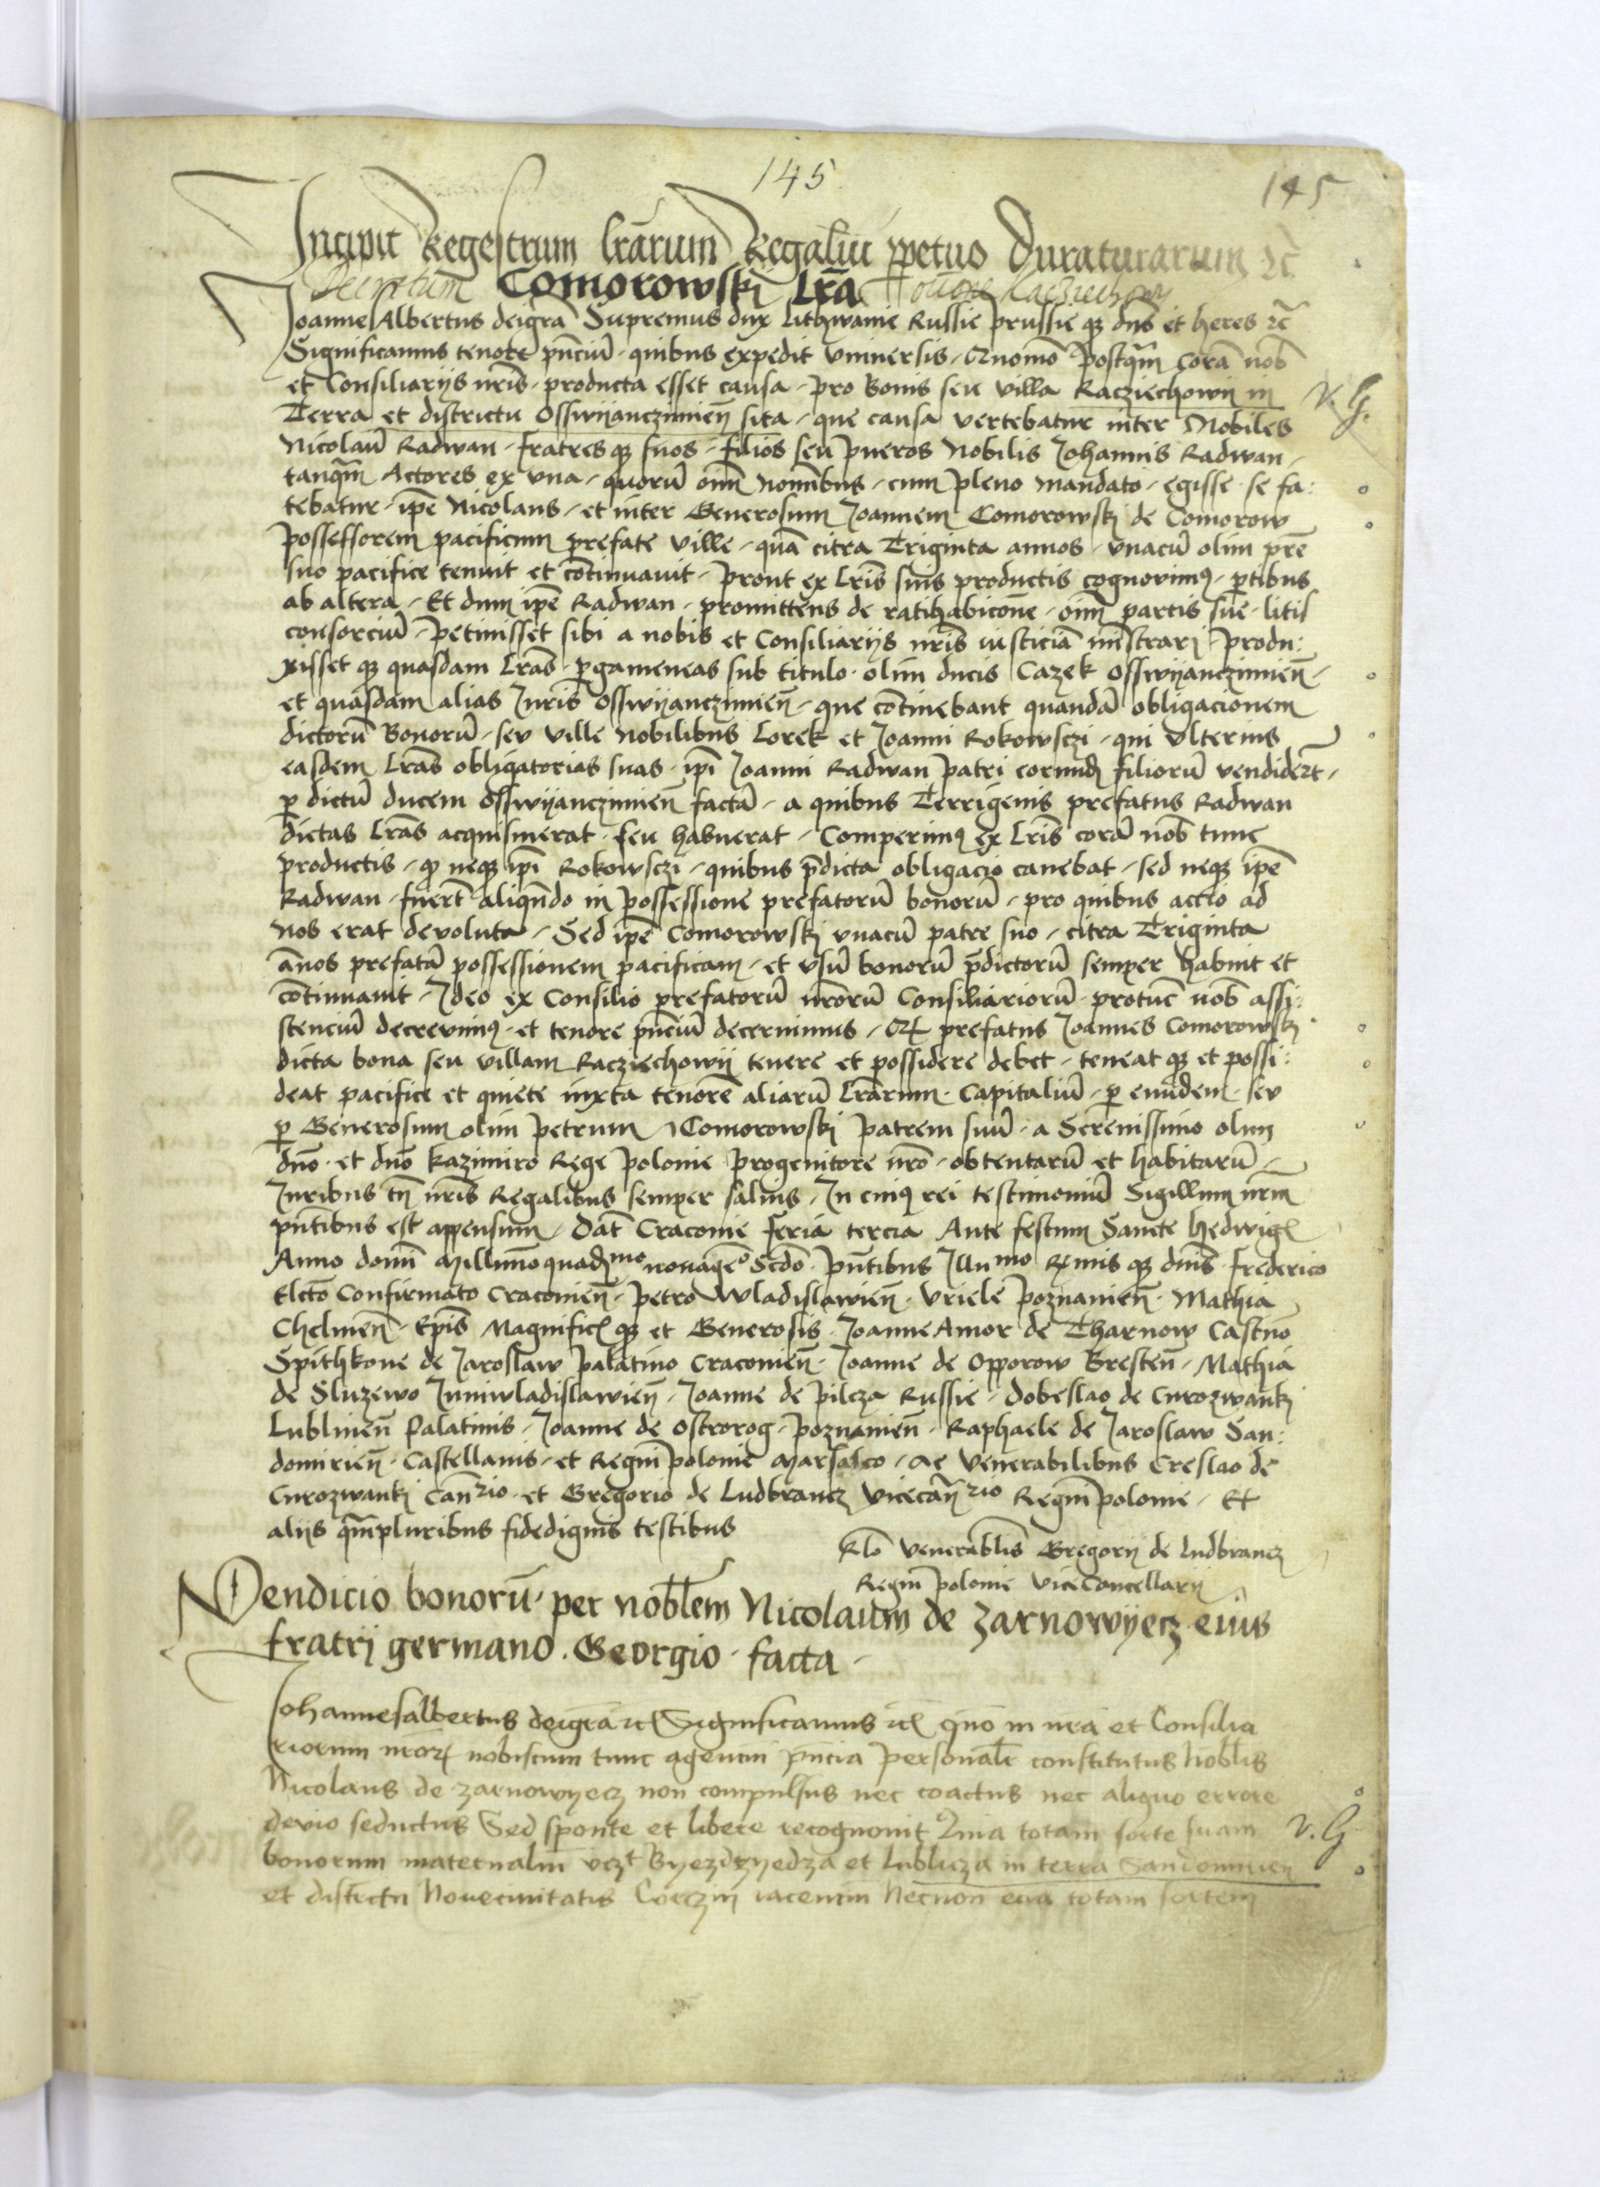 145
145
Incipit Regestrum lrarum Regaliu ppetuo duraturarum zc
Decretum Comorowskj Lra racione Racziechow
Joanne Albertus deigra Supremus dux Lithwanie Russie prussie qz dns et heres zc
Significamus tenore pnciu quibus expedit vniuersis Quomo Postqm cora nob
et Consiliarijs nris producta esset causa pro Bonis seu villa Racziechowij in
v. G.
Terra et districtu Osswijanczimien sita que causa vertebatur inter Nobiles
Nicolau Radwan fratres qz suos filios seu pueros Nobilis Johannis Radwan
tanqm Actores ex vna quoru oim nomibus cum pleno mandato egisse se fa:
tebatur ipe Nicolaus et inter Generosum Joannem Comorowskj de Comorow
Possessorem pacificum prefate ville qua citra Triginta annos vnacu olim pre
suo pacifice tenuit et continuauit prout ex lris suis productis cognovimus ptibus
ab altera Et dum ipe Radwan promittens de ratihabicione oim partis sue litis
consorciu petiuisset sibi a nobis et Consiliarijs nris iusticia mistrarj produ:
xisset qz quasdam lras pgameneas sub titulo olim ducis Cazek Osswijanczimien
et quasdam alias Juris Osswijanczimien que continebant quanda obligacionem
dictoru Bonoru seu ville Nobilibus Lorek et Joanni Rokowsczi qui vlterius
easdem lras obligatorias suas ipi Joanni Radwan patri eorund filioru vendidert
p dictu ducem Osswijanczimien facta a quibus Terrigenis prefatus Radwan
dictas lras acquisiuerat seu habuerat Comperimus ex lris cora nob tunc
productis q neqz ipi Rokowsczi quibus pdicta obligacio cauebat sed neqz ipe
Radwan fuert aliqndo in possessione prefatoru bonoru pro quibus actio ad
nos erat devoluta Sed ipe Comorowskj vnacu patre suo citra Triginta
anos prefata possessionem pacificam et vsu bonoru pdictoru semper habuit et
continuauit Ideo ex Consilio prefatoru nroru Consiliarioru protuc nob assi:
stenciu decrevimus et tenore pnciu decernimus Qz prefatus Joannes Comorowskj
dicta bona seu villam Racziechowij tenere et possidere debet teneat qz et possi:
deat pacifice et quiete iuxta tenore aliaru lrarum Capitaliu p eundem seu
p Generosum olim petrum Comorowskj patrem suu a Serenissimo olim
dno et dno Kazimiro Rege polonie progenitore nro obtentaru et habitaru
Juribus tn nris Regalibus semper saluis In cuius rei testimoniu Sigillum nrm
pntibus est appensum Dat Cracovie feria tercia Ante festum Sancte hedwigis
Anno domi Millimo quadmo nonage° Scdo pntibus Illumo Rxmis qz dnis frederico
Elcto Confirmato Cracovien petro Wladislavien Vriele Poznanien Mathia
Chelmen Epis Magnificis qz et Generosis Joanne Amor de Tharnow Castno
Spithkone de Jaroslaw palatino Cracovien Joanne de Opporow Bresten Mathia
de Sluzewo Juniwladislavien Joanne de pilcza Russie Dobeslao de Curozwankj
Lublinen Palatinis Joanne de Ostrorog Poznanien Raphaele de Jaroslaw San:
domirien Castellanis et Regni polonie Marsalco Ac Venerabilibus Creslao de
Curozwankj Canrio et Gregorio de Ludbrancz Vicecanrio Regni polonie Et
alijs qmpluribus fidedignis testibus
Rlo venerablis Gregorij de Ludbrancz
Regni Polonie ViceCancellarij
Vendicio bonoru per noblem Nicolaum de Zarnowijecz eius
fratrij germano Georgio facta
Johannesalbertus deigra zc Significamus zc quo in nra et Consilia
riorum nror nobiscum tunc agencin pncia Personalr constitutus Noblis
Nicolaus de Zarnowijecz non compulsus nec coactus nec aliquo errore
devio seductus Sed sponte et libere recognouit Quia totam sorte suam
v. G
bonorum maternaliu vczt Byezdzyedza et Lubluza in terra Sandomirien
et districtu Novecivitatis Corczin iacencin Necnon eciam totam sortem